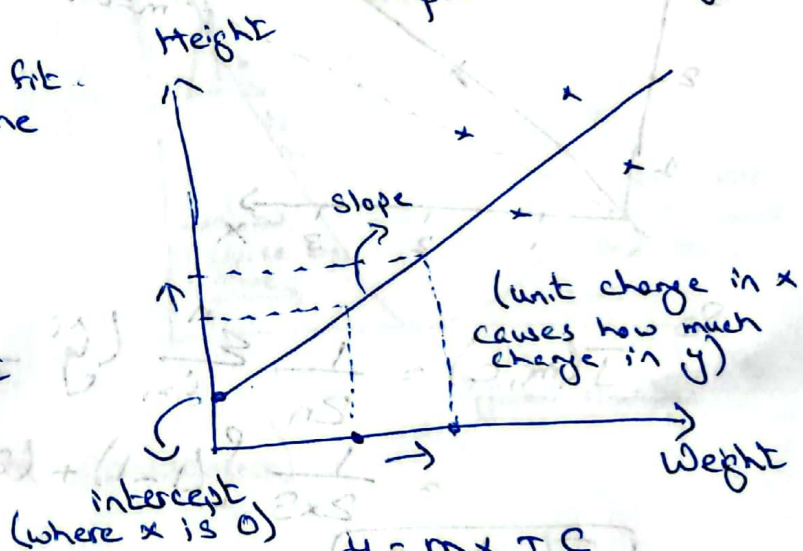 Height
fit.
slope
(unit change in x
causes how much
change in y)
Weight
intercept
(where x is 0)
y = mx + C